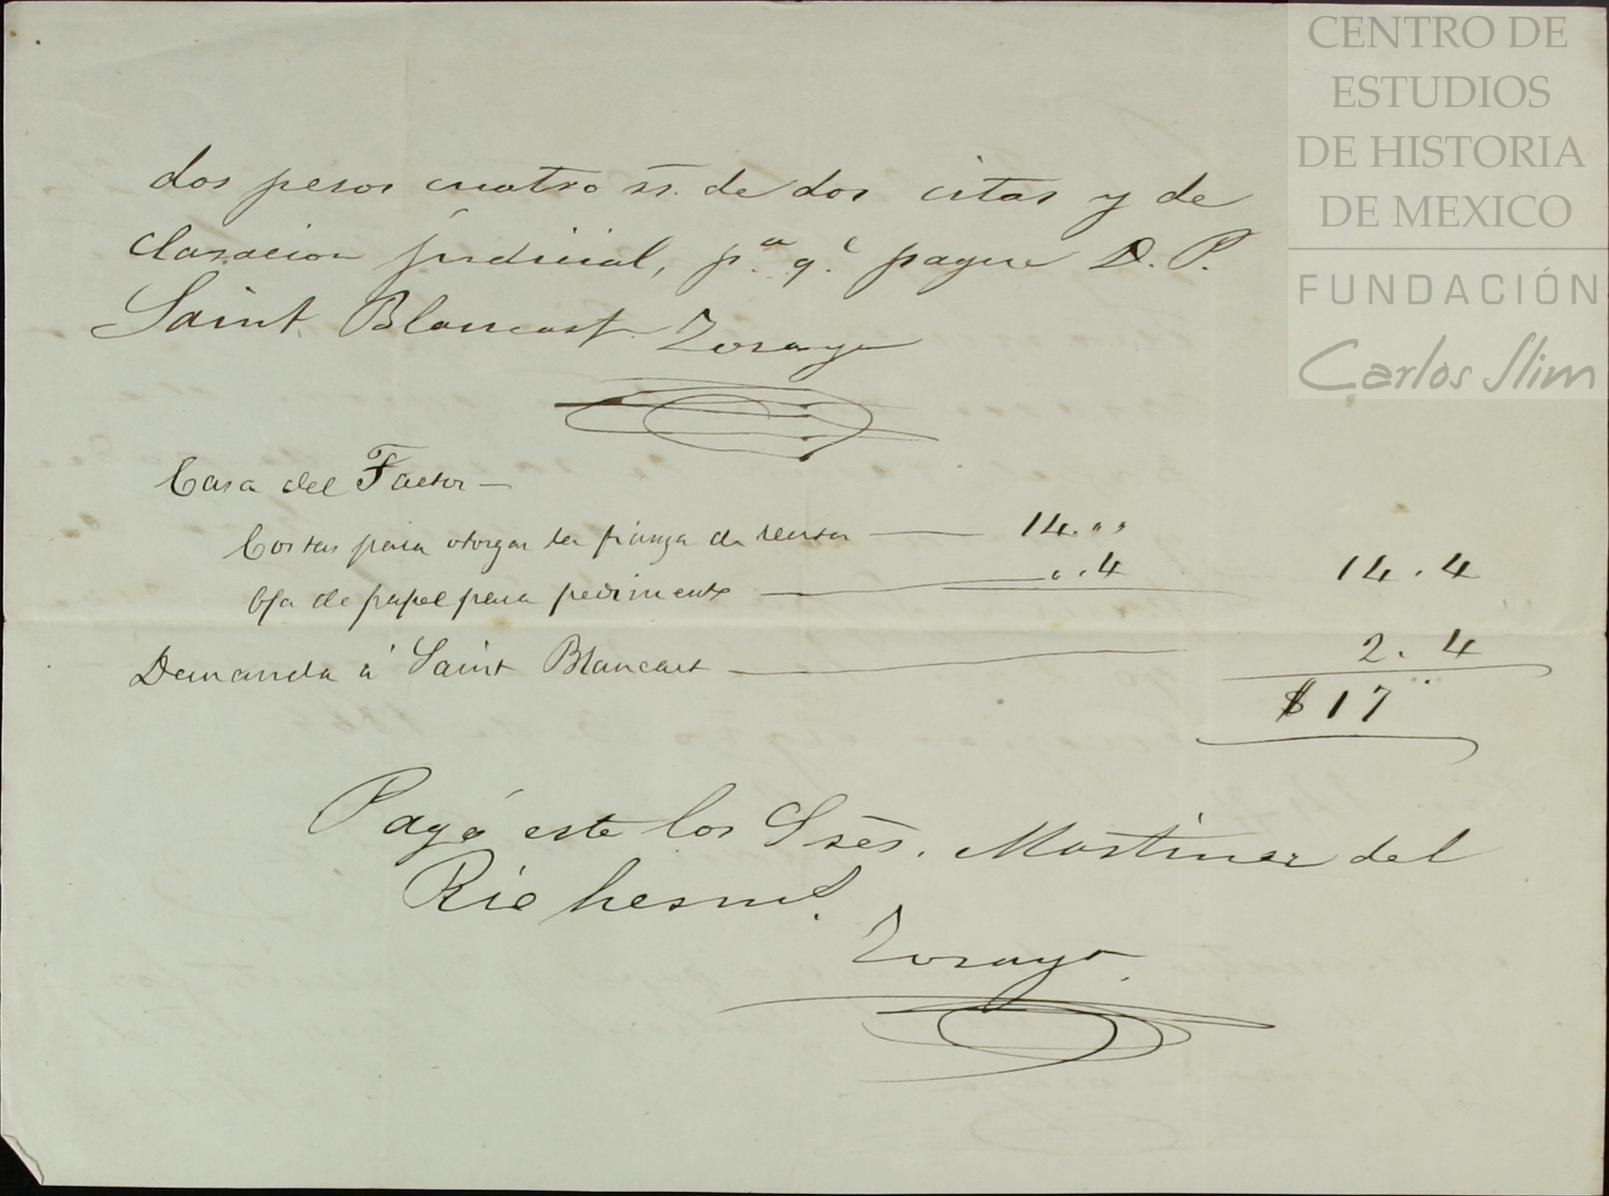 CENTRO DE
ESTUDIOS
DE HISTORIA
DE MEXICO
FUNDACIÓN
Carlos Slim
dos pesos cuatro rr. de dos citas y de
claracion judicial, p.ª q.e pague D. P.
Saint Blancart. Zorayo
Casa del Factor —
Costas para otorgar la fianza de renta — 14. " "
Oja de papel para pedimento — " . 4 14 . 4
Demanda á Saint Blancart — 2 . 4
$ 17 "
Pagó este los Sres. Martinez del
Rio herm.s
Zorayo